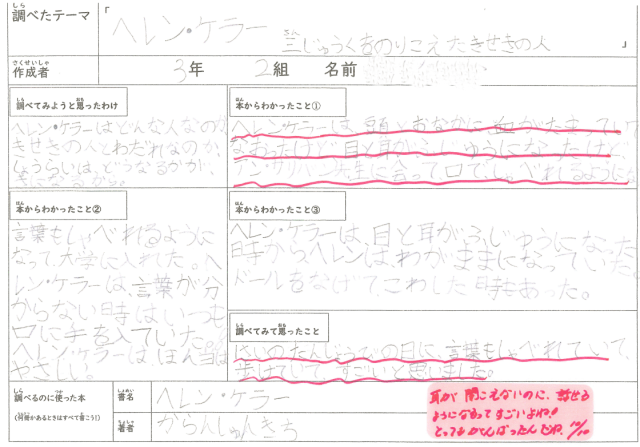 しら
調べたテーマ
「
ヘレン・ケラー
三じゅうくをのりこえたきせきの人
」
さくせいしゃ
作成者
3年 2組 名前
しら おも
調べてみようと思ったわけ
ヘレン・ケラーはどんな人なのか
きせきの人とわだれなのか
しょうらいは、どうなるかが、
ほん
本からわかったこと①
ヘレンケラーは 頭とおなかに血がたまっていて
なおったけど 目と耳がふじゆうになったけど
サリバン先生に会って口で、しゃべれるようにな
ほん
本からわかったこと②
言葉もしゃべれるように
なって大学に入れた。ヘ
レン・ケラーは言葉が分
からない時はいつも
口に手を入ていた。
ヘレン・ケラーはほん当は
やさしい。
ほん
本からわかったこと③
ヘレン・ケラーは、目と耳がふじゆうになった
時からヘレンはわがままになっていた。
ドールをなげてこわした時もあった。
しら おも
調べてみて思ったこと
の日に言葉もしゃべれていて、
歩けていてすごいと思いました。
しら つか ほん
調べるのに使った本
(何冊かあるときはすべて書こう!)
しょめい
書名
ヘレン・ケラー
ちょしゃ
著者
耳が聞こえないのに、話せる
ようになるってすごいよね!
とってもがんばったんだね